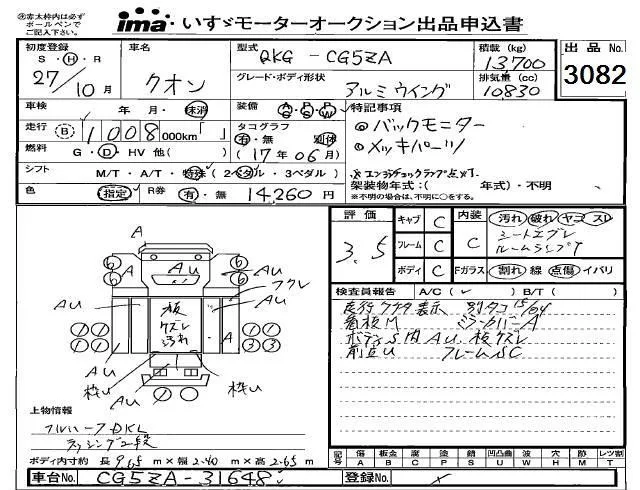 ※赤太枠内は必ず
ボールペンで
ご記入下さい。
ima いすゞモーターオークション出品申込書
初度登録 S・H・R 27/10月
車名 クオン
型式 QKG-CG5ZA
グレード・ボディ形状 アルミウイング
積載(kg) 13700
排気量(cc) 10830
出品No. 3082
車検 年 月・抹消
装備 AC PS PW
走行 B 1008 000km
タコグラフ 有・無 (17年06月)
燃料 G・D・HV 他( )
シフト M/T・A/T・特殊(2ペダル・3ペダル)
色 指定 R券 有・無 14,260円
特記事項
◎バックモニター
◎メッキパーツ
※エンジンチェックランプ点灯
架装物年式:( 年式)・不明
※不明の場合は、不明に○をする。
評価 3.5
キャブ C
フレーム C
ボディ C
内装 C
汚れ 破れ ヤニ スレ
シートスレ
ルームランプT
Fガラス 割れ 線 点傷 イバリ
検査員報告 A/C( ✓ ) B/T( )
走行クチタ表示 別タコ15/04
看板M ミラーカバーA
ボディS内AU、板ケズレ
前立U フレームSC
A
AU
フクレ
板
ケズレ
汚れ
枠U
枠U
上物情報
フルハーフDKL
ラッシング2段
ボディ内寸約 長9.65m×幅2.40m×高2.65m
記号 傷A 板金B 腐C 塗P 錆S 凹凸曲U 波W 穴H 跡M レツ割T
車台No. CG5ZA-31648
登録No.